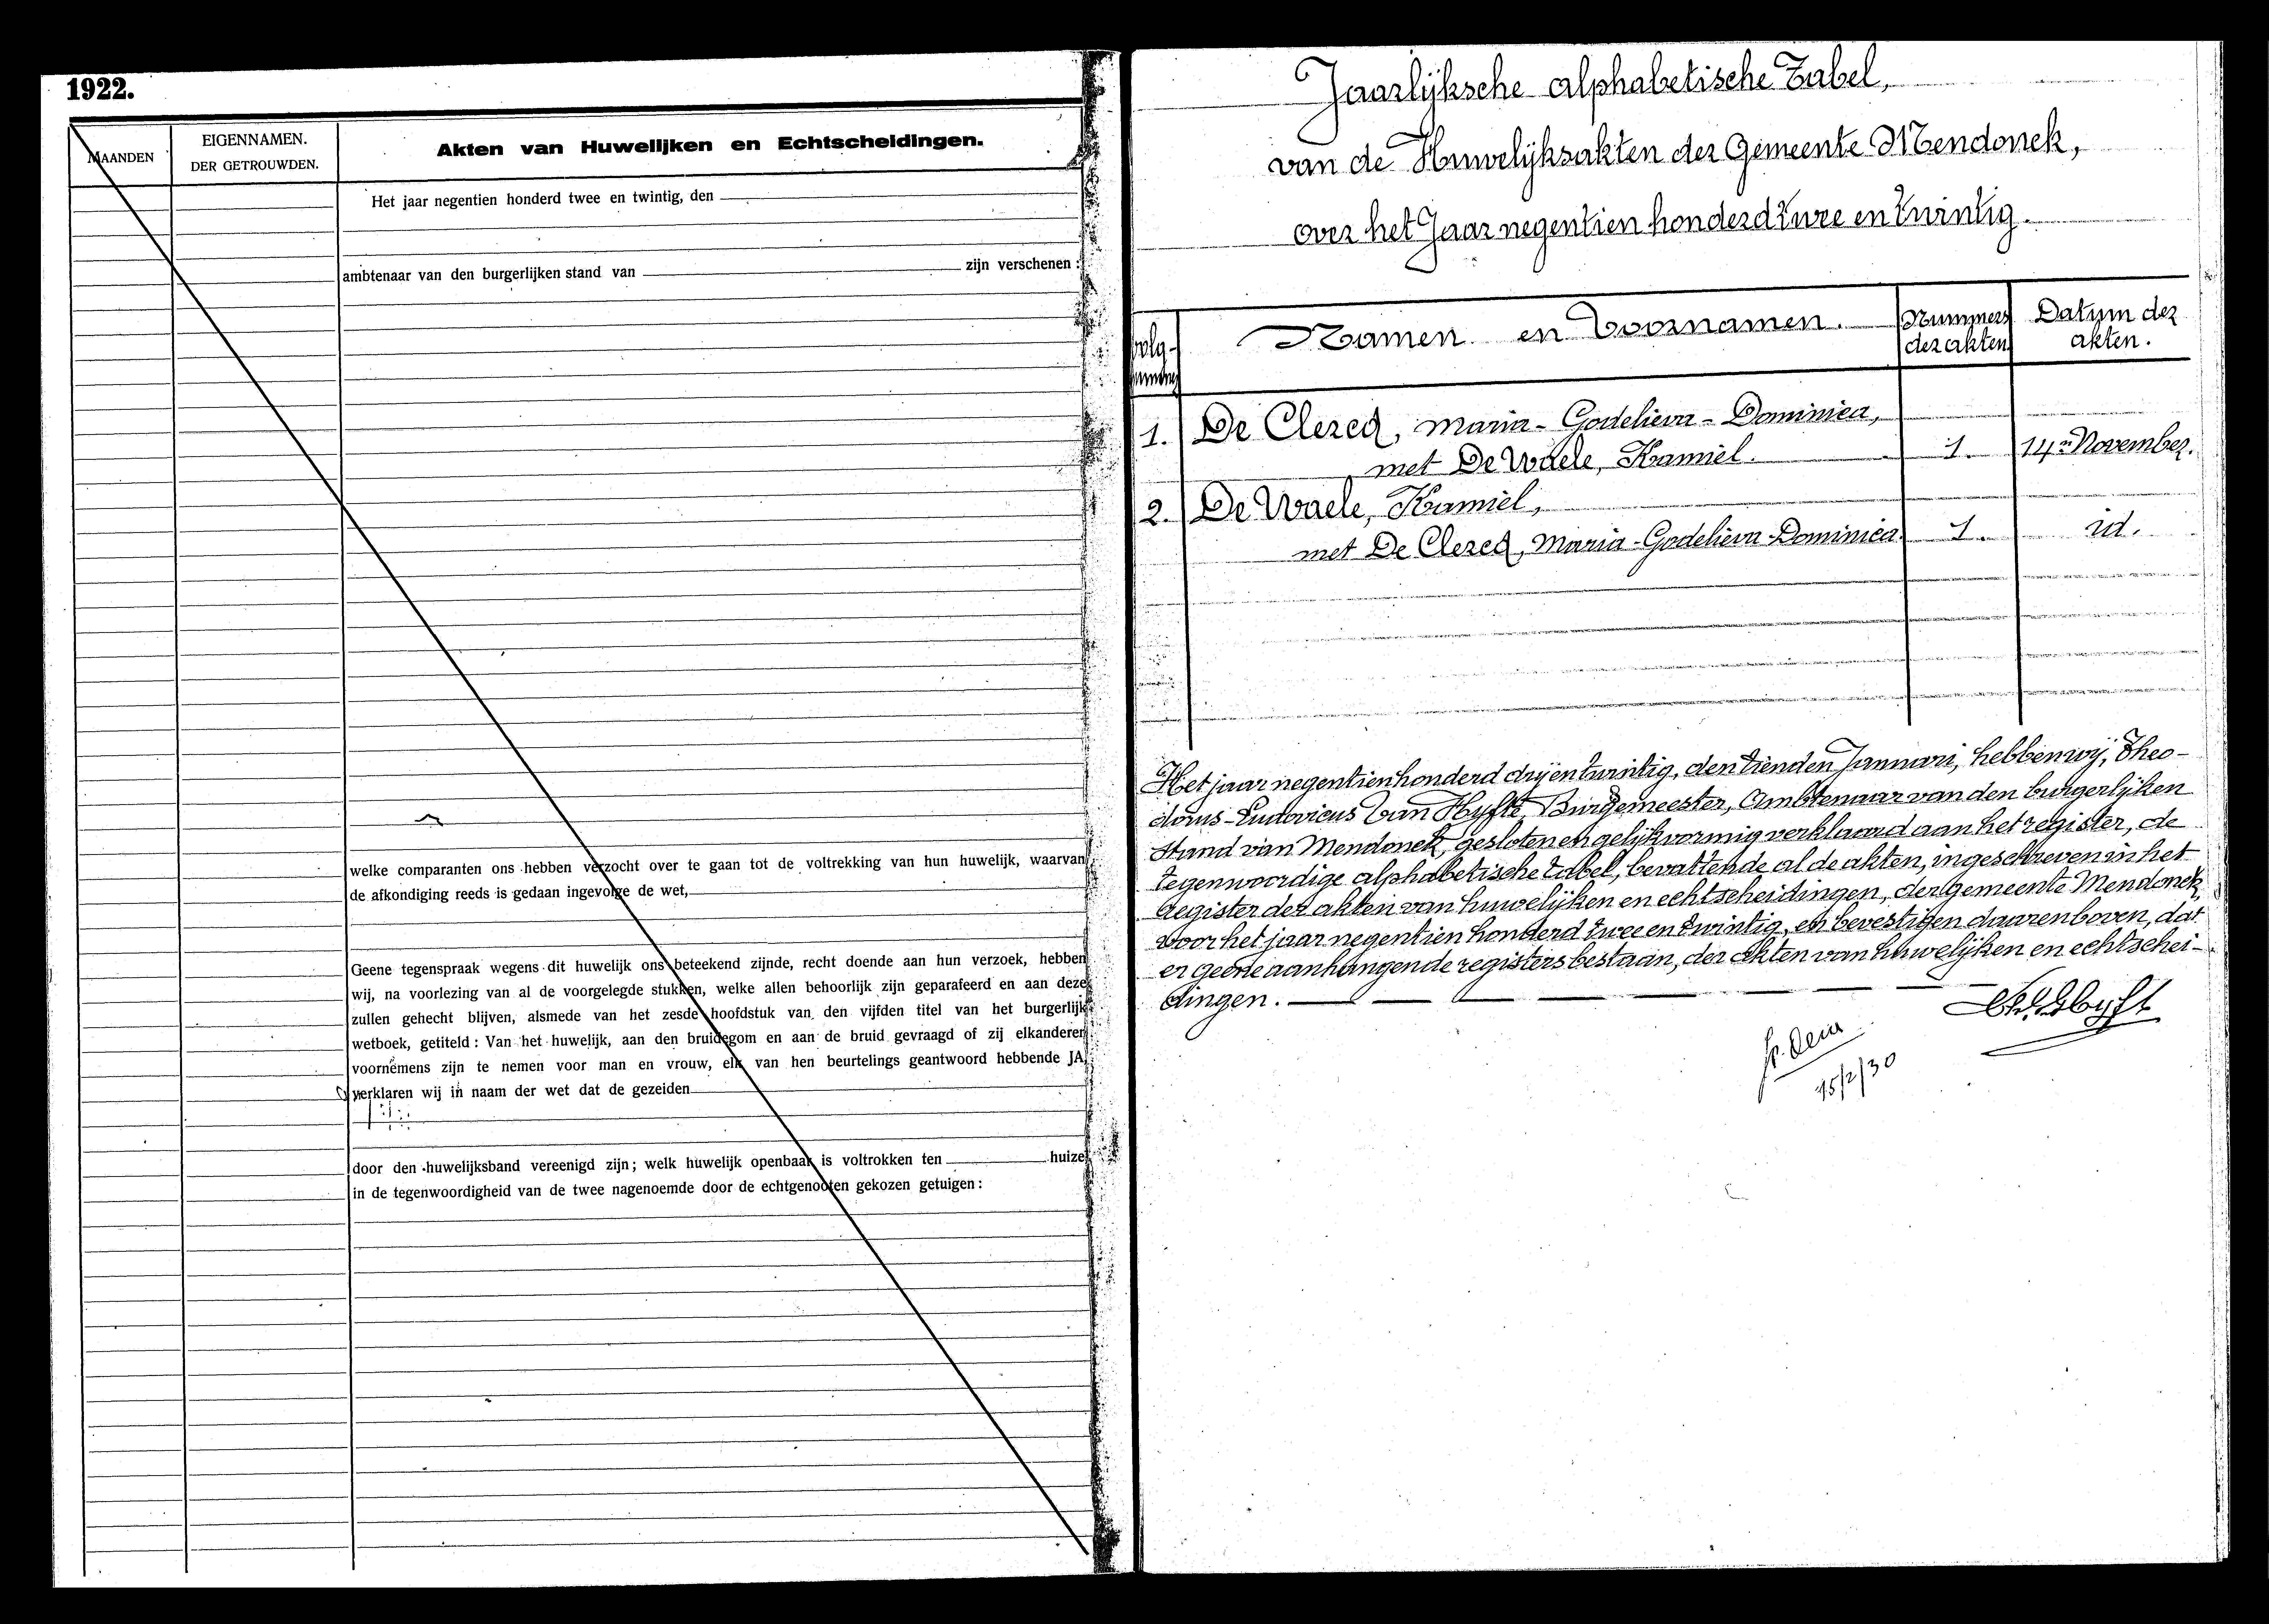 1922.
MAANDEN
EIGENNAMEN.
DER GETROUWDEN.
Akten van Huwelijken en Echtscheidingen.
Het jaar negentien honderd twee en twintig, den
ambtenaar van den burgerlijken stand van zijn verschenen :
welke comparanten ons hebben verzocht over te gaan tot de voltrekking van hun huwelijk, waarvan
de afkondiging reeds is gedaan ingevolge de wet,
Geene tegenspraak wegens dit huwelijk ons beteekend zijnde, recht doende aan hun verzoek, hebben
wij, na voorlezing van al de voorgelegde stukken, welke allen behoorlijk zijn geparafeerd en aan deze
zullen gehecht blijven, alsmede van het zesde hoofdstuk van den vijfden titel van het burgerlijk
wetboek, getiteld : Van het huwelijk, aan den bruidegom en aan de bruid gevraagd of zij elkanderen
voornemens zijn te nemen voor man en vrouw, elk van hen beurtelings geantwoord hebbende JA,
verklaren wij in naam der wet dat de gezeiden
door den huwelijksband vereenigd zijn ; welk huwelijk openbaar is voltrokken ten huize
in de tegenwoordigheid van de twee nagenoemde door de echtgenooten gekozen getuigen :
Jaarlijksche alphabetische Tabel,
van de Huwelijksakten der Gemeente Mendonck,
over het Jaar negentien honderd twee en twintig.
Volg-
nummer
Namen en Voornamen.
Nummers
der akten
Datum der
akten.
1. De Clercq, Maria-Godelieva-Dominica,
met De Waele, Kamiel. 1. 14n November.
2. De Waele, Kamiel,
met De Clercq, Maria-Godelieva-Dominica. 1. id.
Het jaar negentien honderd drij en twintig, den tienden Januari, hebben wij, Theo-
dorus-Ludovicus Van Hyfte, Burgemeester, Ambtenaar van den burgerlijken
stand van Mendonck, gesloten en gelijkvormig verklaard aan het register, de
tegenwoordige alphabetische tabel, bevattende al de akten, ingeschreven in het
Register der akten van huwelijken en echtscheidingen, der gemeente Mendonck,
voor het jaar negentien honderd twee en twintig, en bevestigen daarenboven, dat
er geene aanhangende registers bestaan, der akten van huwelijken en echtschei-
dingen.
15/2/30